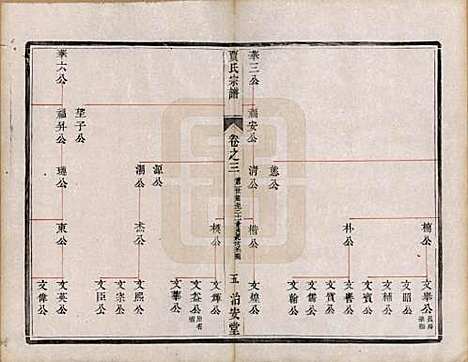 華三公
福安公
蕙公
清公
楠公
朴公
楷公
模公
文畢公
文昭公
文輔公
文寶公
文譽公
文儒公
文翰公
文煌公
文輝公
文益公
文華公
賈氏宗譜
卷之三
五
治安堂
華六公
望子公
福昇公
源公
湖公
璉公
杰公
東公
文熙公
文宗公
文臣公
文英公
文偉公